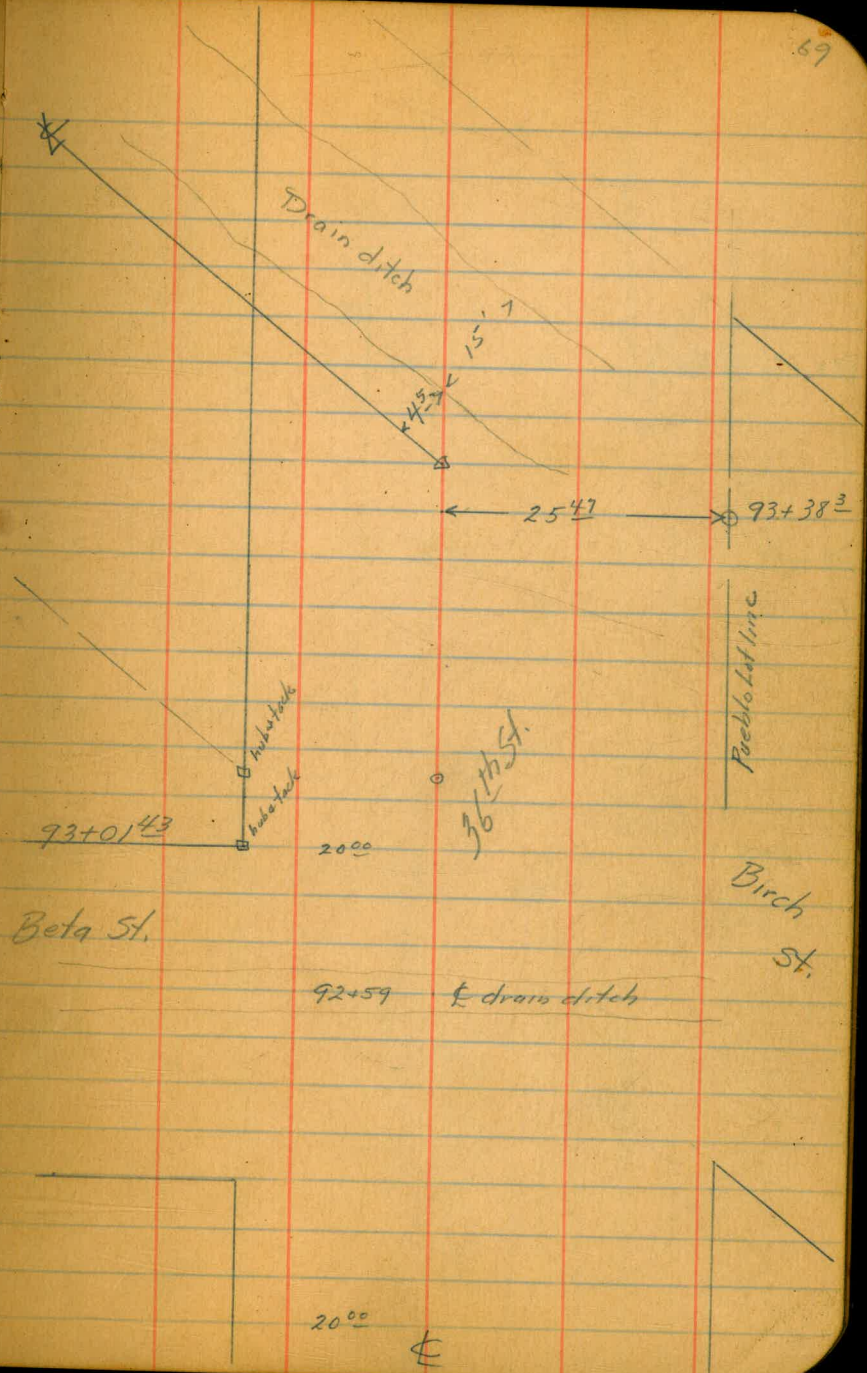 69
℄
Drain ditch
15'
4⁵
25⁴⁷
93+38³
Pueblo Lot line
hub & tack
hub & tack
36th St.
93+01⁴³
20⁰⁰
Birch
St.
Beta St.
92+59 ℄ drain ditch
20⁰⁰
℄